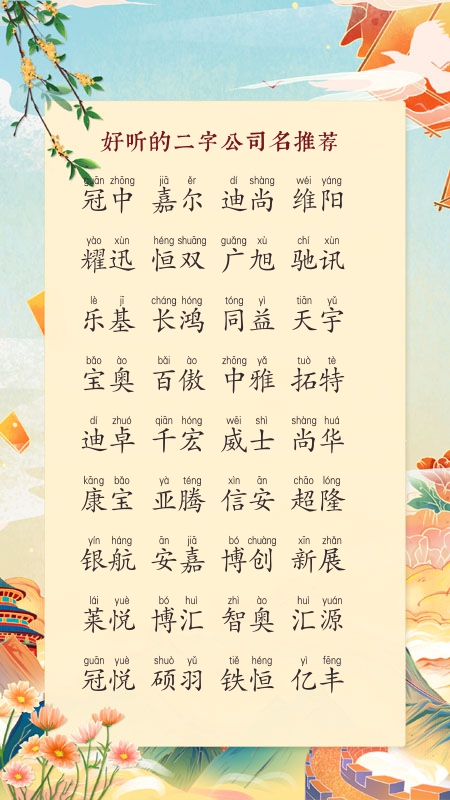 好听的二字公司名推荐
guān zhōng jiā ěr dí shàng wéi yáng
冠中 嘉尔 迪尚 维阳
yào xùn héng shuāng guǎng xù chí xùn
耀迅 恒双 广旭 驰讯
lè jī cháng hóng tóng yì tiān yǔ
乐基 长鸿 同益 天宇
bǎo ào bǎi ào zhōng yǎ tuò tè
宝奥 百傲 中雅 拓特
dí zhuó qiān hóng wēi shì shàng huá
迪卓 千宏 威士 尚华
kāng bǎo yà téng xìn ān chāo lóng
康宝 亚腾 信安 超隆
yín háng ān jiā bó chuàng xīn zhǎn
银航 安嘉 博创 新展
lái yuè bó huì zhì ào huì yuán
莱悦 博汇 智奥 汇源
guān yuè shuò yǔ tiě héng yì fēng
冠悦 硕羽 铁恒 亿丰